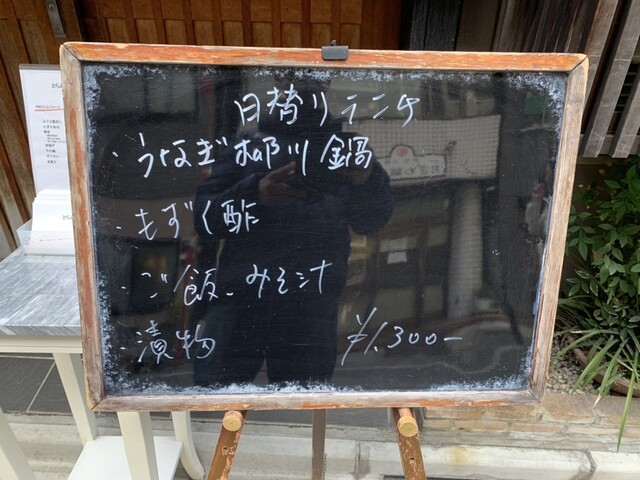 日替りランチ
・うなぎ柳川鍋
・もずく酢
・ご飯、みそ汁
・漬物 ¥1,300-